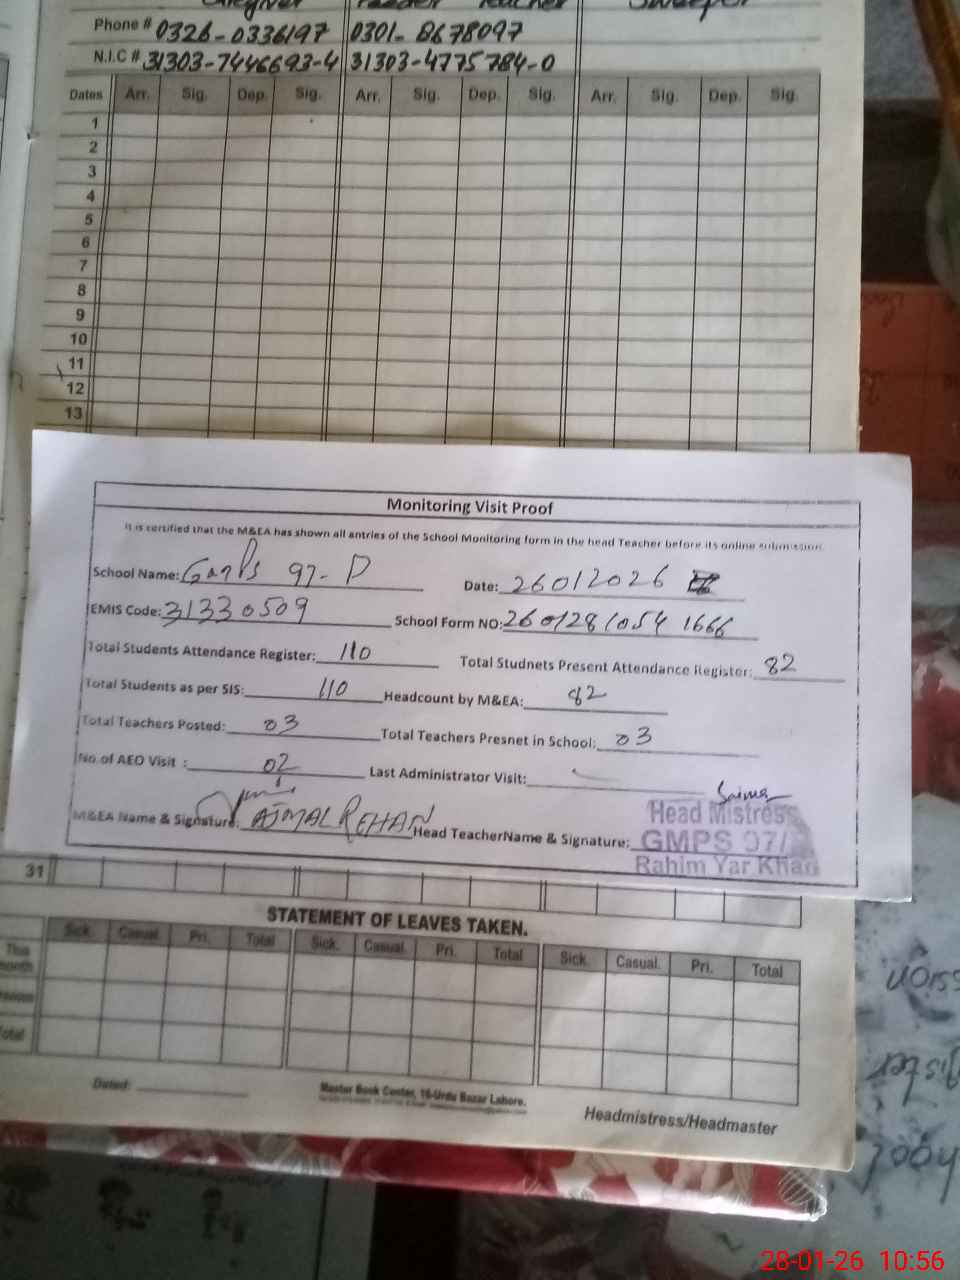 Caregiver Teacher Sweeper
Phone # 0326-0336197 0301-8678097
N.I.C # 31303-7446693-4 31303-4775784-0
Dates Arr. Sig. Dep. Sig. Arr. Sig. Dep. Sig. Arr. Sig. Dep. Sig.
1
2
3
4
5
6
7
8
9
10
11
12
13
Monitoring Visit Proof
It is certified that the M&EA has shown all antries of the School Monitoring form in the head Teacher before its online submission.
School Name: 97-D Date: 26012026
EMIS Code: 31330509 School Form NO: 2601281054 1666
Total Students Attendance Register: 110 Total Studnets Present Attendance Register: 82
Total Students as per SIS: 110 Headcount by M&EA: 82
Total Teachers Posted: 03 Total Teachers Presnet in School: 03
No.of AEO Visit : 02 Last Administrator Visit:
M&EA Name & Signature: AJMAL REHAN Head TeacherName & Signature: Saima
Head Mistress
GMPS 97/
Rahim Yar Khan
31
STATEMENT OF LEAVES TAKEN.
Sick. Casual. Pri. Total Sick. Casual. Pri. Total Sick. Casual. Pri. Total
This month
Total
Dated:
Master Book Center, 16-Urdu Bazar Lahore.
Headmistress/Headmaster
28-01-26 10:56